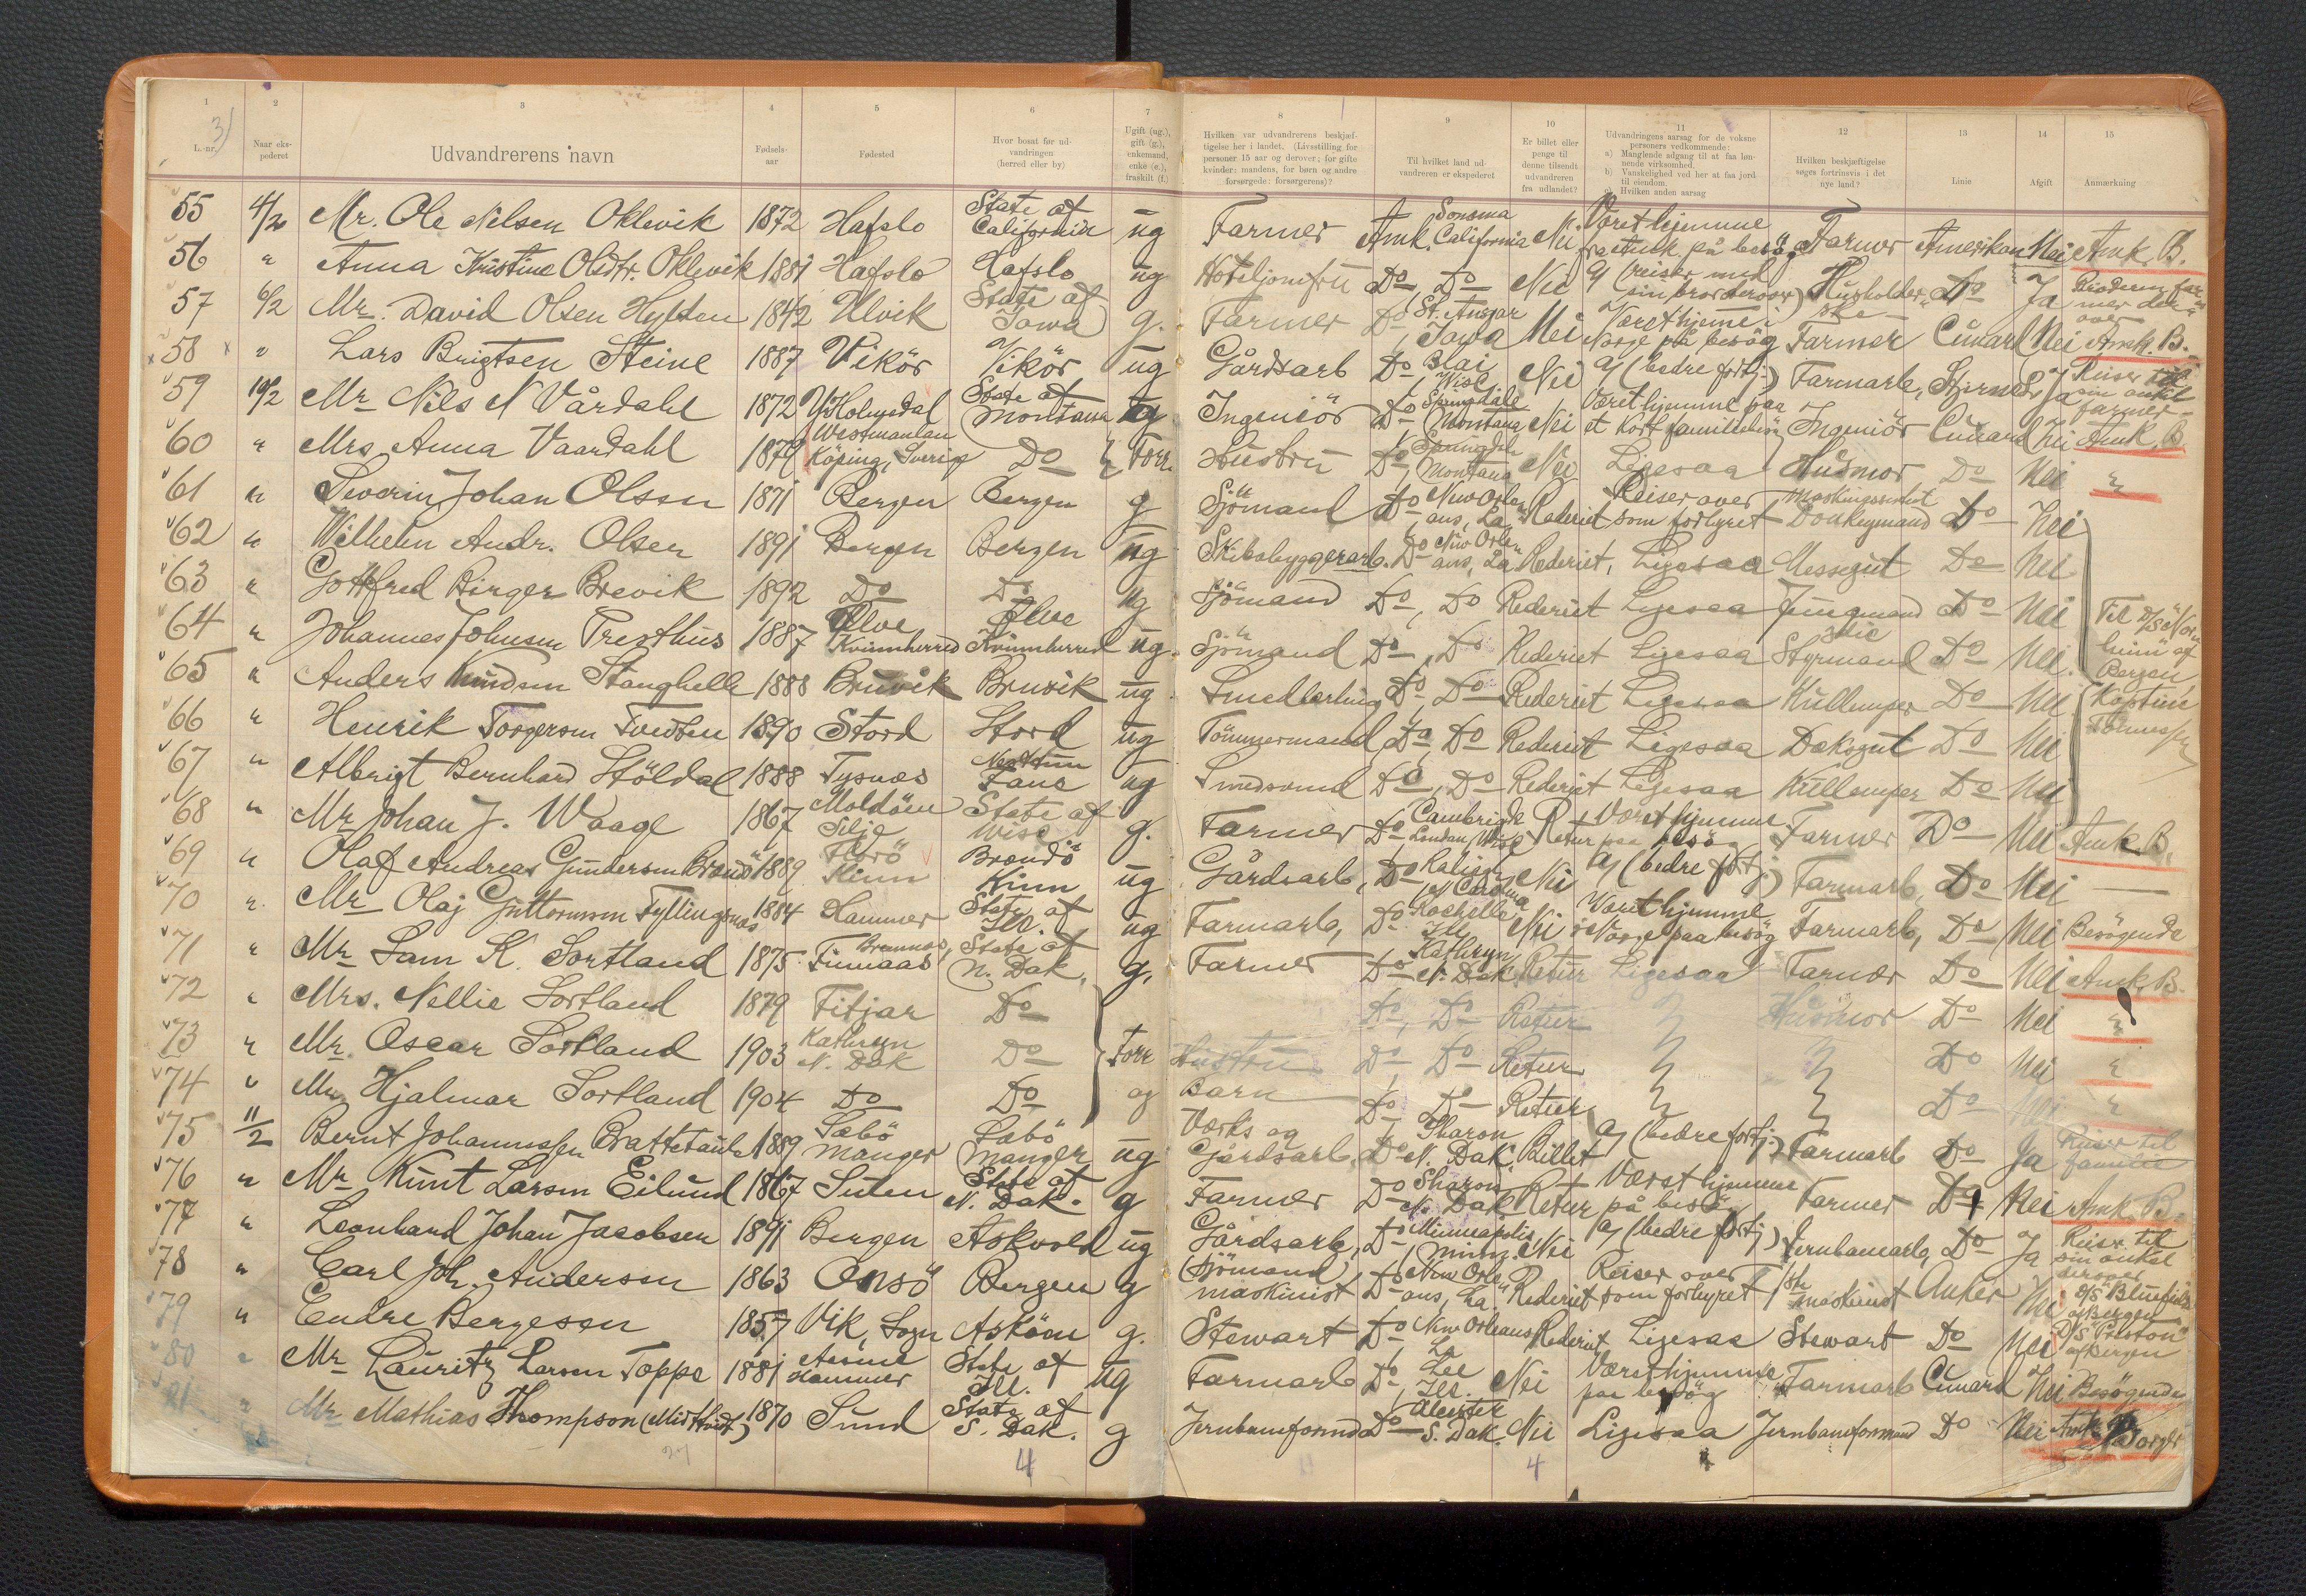 1 2 3 4 5 6 7 8 9 10 11 12 13 14 15
3)
L.-nr. Naar ekspederet Udvandrerens navn Fødselsaar Fødested Hvor bosat før udvandringen (herred eller by) Ugift (ug.), gift (g.), enkemand, enke (e.), fraskilt (f.) Hvilken var udvandrerens beskjæftigelse her i landet. (Livsstilling for personer 15 aar og derover; for gifte kvinder: mandens, for børn og andre forsørgede: forsørgerens)? Til hvilket land udvandreren er ekspederet Er billet eller penge til denne tilsendt udvandreren fra udlandet? Udvandringens aarsag for de voksne personers vedkommende: a) Manglende adgang til at faa lønnende virksomhed. b) Vanskelighed ved her at faa jord til eiendom. c) Hvilken anden aarsag Hvilken beskjæftigelse søges fortrinsvis i det nye land? Linie Afgift Anmærkning
55 4/2 Mr. Ole Nilsen Oklevik 1872 Hafslo State of California ug Farmer Amk. Sonoma California Nei Været hjemme fra Amk på besög Farmer Amerikan Nei Amk. B.
56 " Anna Kristine Olsdtr. Oklevik 1881 Hafslo Hafslo ug Hoteljomfru Do, Do Nei a) (reiser med sin bror derover) Husholderske Do Ja
57 6/2 Mr. David Olsen Hylten 1842 Ulvik State of Iowa g. Farmer Do St. Ansgar Iowa Nei Været hjemme i Norge på besög Farmer Cunard Nei Amk. B.
58 " Lars Brigtsen Steine 1887 Vikör Vikör ug Gårdsarb Do Blai, Wisc Nei a) (bedre fortj.) Farmarb, Stjerne L. Ja Reiser til sin onkel farmer
59 10/2 Mr Nils N Vårdahl 1872 State of Montana Ingeniör Do Springdale Montana Nei Været hjemme paa et kort familiebesög Ingeniör Cunard Nei Amk. B
60 " Mrs Anna Vaardahl 1879 Westmanlan Köping, Sverige Do Forr. Hustru Do, Springdale Montana Nei Ligesaa Husmor Do Nei "
61 " Severin Johan Olsen 1871 Bergen Bergen g Sjömand Do New Orleans, La. Rederiet Reiser over som forhyret Donkeymand Do Nei
62 " Wilhelm Andr. Olsen 1891 Bergen Bergen ug Skibsbyggerarb. Do New Orleans, La. Rederiet, Ligesaa Messegut Do Nei
63 " Gottfred Birger Brevik 1892 Do Do ug Sjömand Do, Do Rederiet Ligesaa Jungmand Do Nei
64 " Johannes Johnsen Tresthus 1887 Ølve Kvinnherred Ølve Kvinnherred ug. Sjömand Do, Do Rederiet Ligesaa Styrmand Do Nei.
65 " Anders Knudsen Stanghelle 1888 Bruvik Bruvik ug. Smedlærling Do, Do Rederiet Ligesaa Kullemper Do Nei
66 " Henrik Torgersen Tveiten 1890 Stord Stord ug Tömmermand Do, Do Rederiet Ligesaa Daksgut Do Nei
67 " Albrigt Bernhard Stöldal 1888 Tysnæs Nesttun Fane ug Smedsvend Do, Do Rederiet Ligesaa Kullemper Do Nei
68 " Mr Johan J. Waage 1867 Moldöen Selje State of Wisc g. Farmer Do Cambrigde London, Wisc Retur Været hjemme paa besö Farmer Do Nei Amk B.
69 " Olaf Andreas Gundersen Brandö 1889 Florö Kinn Brandö Kinn ug Gårdsarb, Do Raliegh N Carolina Nei a) (bedre fortj.) Farmarb, Do Nei —
70 " Mr Olaj Guttormsen Tyllingsnæs 1884 Hammer State of Ill. ug Farmarb, Do Rochelle Ill Nei Været hjemme i Norge paa besög Farmarb, Do Nei Besögende
71 " Mr Sam K. Sortland 1875 Bremnæs, Finnaas State of N. Dak. g. Farmer Do Kathryn N. Dak. Retur Ligesaa Farmer Do Nei Amk. B.
72 " Mrs. Nellie Sortland 1879 Fitjar Do Do, Do Retur " Husmor Do Nei "
73 " Mr. Oscar Sortland 1903 Kathryn N. Dak Do Forr Hustru Do, Do Retur " " Do Nei "
74 " Mr. Hjalmar Sortland 1904 Do Do og Barn Do, Do Retur " " Do Nei "
75 11/2 Bernt Johannessen Brattetaule 1889 Sæbö Manger Sæbö Manger ug Værks og Gårdsarb. Do Sharon N. Dak. Billet a) (bedre fortj.) Farmarb Do Ja Reiser til familie
76 " Mr Knut Larsen Eilund 1867 Sulen State of N. Dak. g Farmer Do Sharon N. Dak Retur Været hjemme på besög Farmer Do Nei Amk. B.
77 " Leonhard Johan Jacobsen 1891 Bergen Askvold ug Gårdsarb, Do Minneapolis, Minn. Nei a) (bedre fortj.) Jernbanearb, Do Ja Reiser til sin onkel derover
78 " Carl Joh. Andersen 1863 Onsö Bergen g Sjömand, maskinist Do New Orleans, La. Rederiet Reiser over som forhyret 1ste maskinist Anker Nei D/S "Bluefields" af Bergen
79 " Endre Bergesen 1857 Vik, Sogn Asköen g. Stewart Do New Orleans La Rederiet Ligesaa Stewart Do Nei D/S "Preston" af Bergen
80 " Mr Lauritz Larsen Toppe 1881 Aasene Hammer State of Ill. ug Farmarb Do Lee Ill. Nei Været hjemme, paa besög Farmarb Cunard Nei Besögende
81 " Mr Mathias Thompson (Midttvedt) 1870 Sund State of S. Dak. g Jernbaneformd Do Alcester S. Dak. Nei Ligesaa Jernbaneformand Do Nei Amk Borger
Til D/S "Norheim" af Bergen, Kaptein Tönnessen
4 4